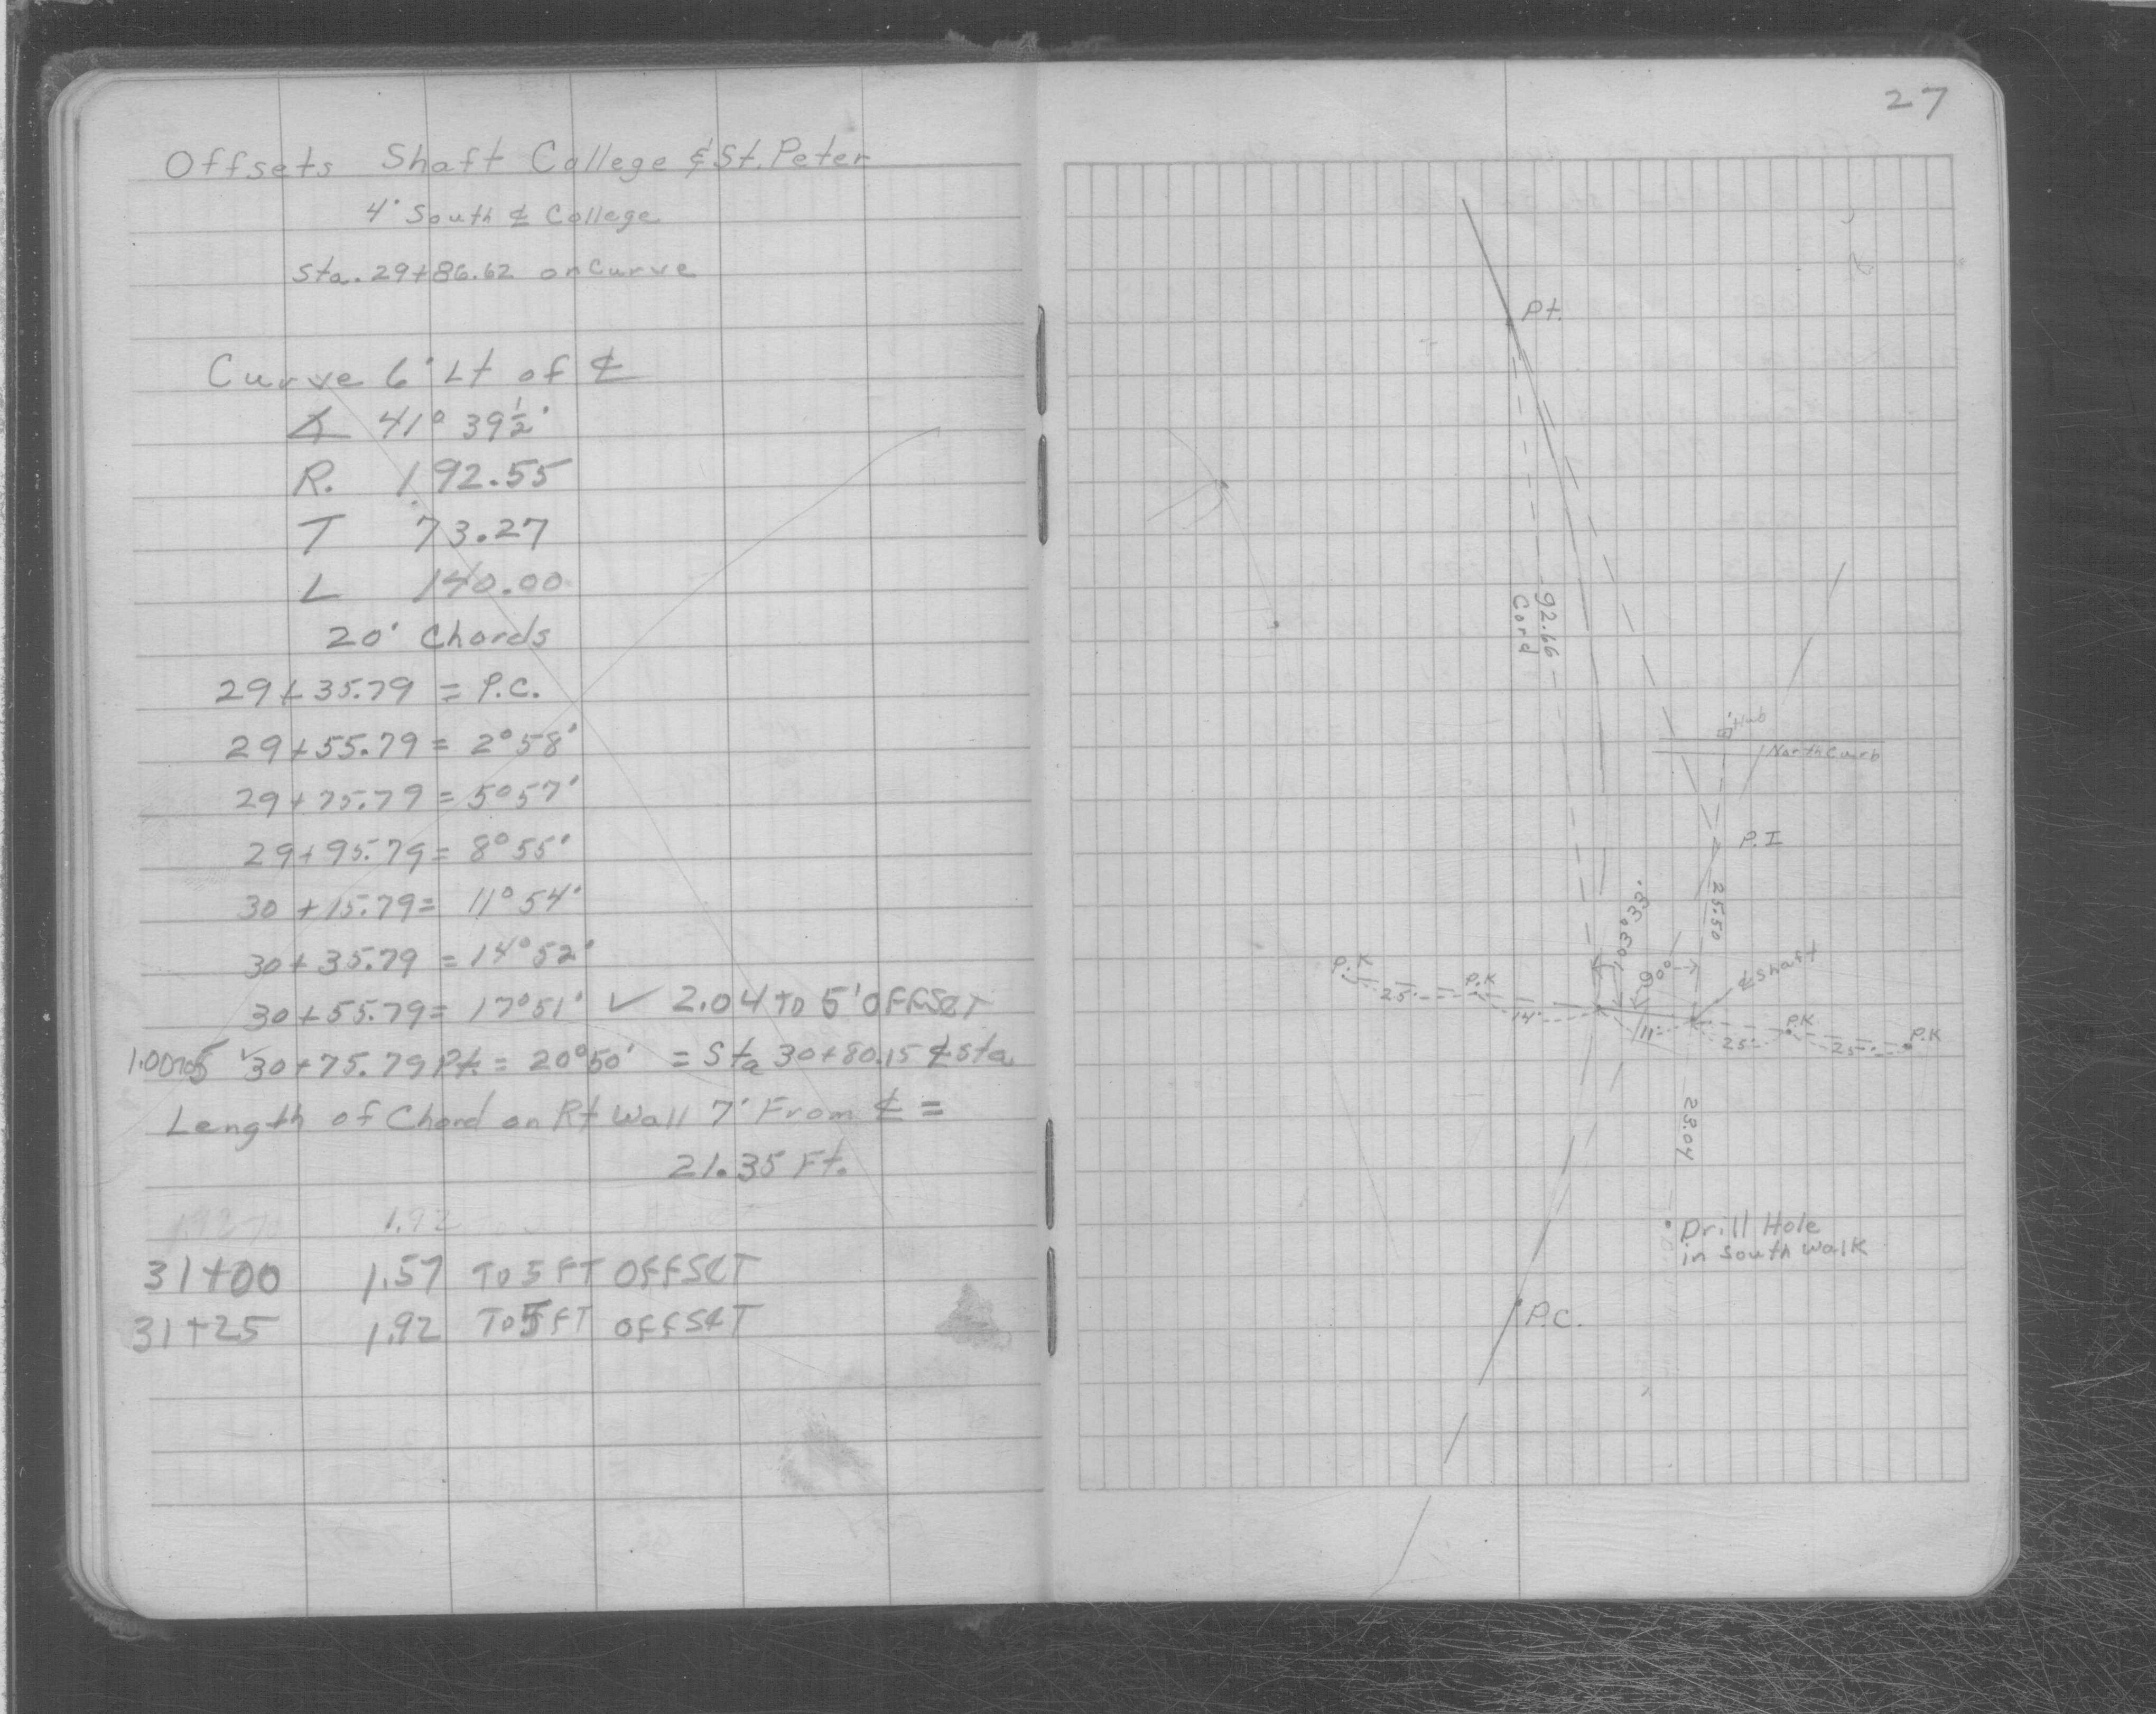 Offsets Shaft College & St. Peter
4' South ℄ College
Sta. 29+86.62 on Curve
Curve 6' Lt of ℄
∠ 41° 39½'
R. 192.55
T 73.27
L 140.00
20' Chords
29+35.79 = P.C.
29+55.79 = 2°58'
29+75.79 = 5°57'
29+95.79 = 8°55'
30+15.79 = 11°54'
30+35.79 = 14°52'
30+55.79 = 17°51' ✓ 2.04 TO 5' OFFSET
1.00 TO 5 ✓ 30+75.79 Pt. = 20°50' = Sta 30+80.15 ℄ Sta
Length of Chord on Rt Wall 7' From ℄ =
21.35 Ft.
1.92
31+00 1.57 TO 5 FT OFFSET
31+25 1.92 TO 5 FT OFFSET
27
Pt.
92.66
Cord
Hub
North Curb
P.I
25.50
103°33'
90°
℄ Shaft
P.K
25'
P.K
14'
11'
25'
P.K
25'
P.K
23.04
Drill Hole
in South Walk
P.C.